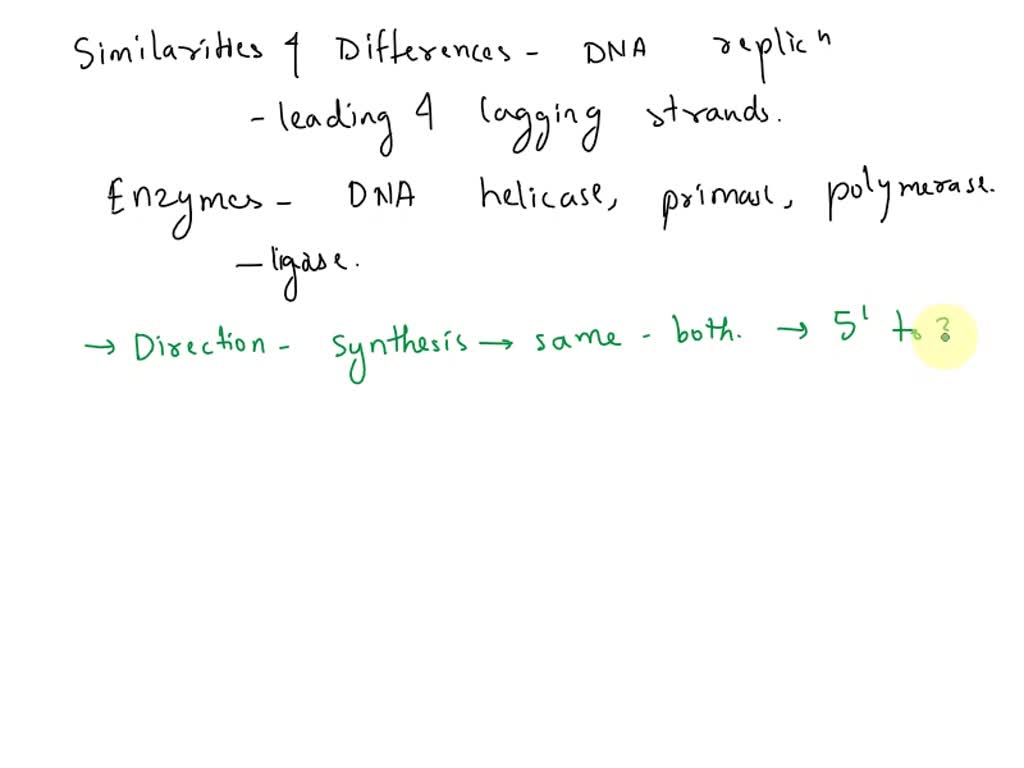 Similarities & Differences - DNA replicn
- leading & lagging strands.
Enzymes - DNA helicase, primase, polymerase.
- ligase.
→ Direction - synthesis → same - both. → 5' to 3